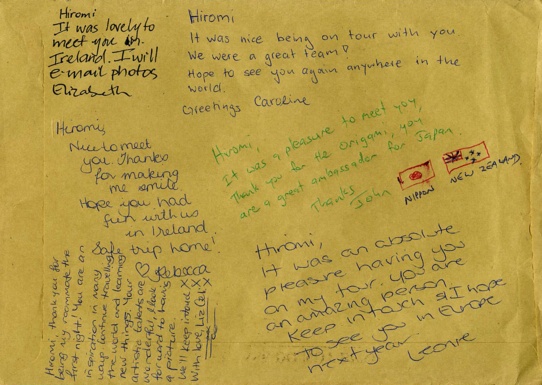 Hiromi
It was lovely to
meet you in
Ireland. I will
e-mail photos
Elizabeth
Hiromi
It was nice being on tour with you
We were a great team!
Hope to see you again anywhere in the
world.
Greetings Caroline
Hiromi,
Nice to meet
you. Thanks
for making
me smile.
Hope you had
fun with us
in Ireland.
Safe trip home!
♡ Rebecca
XXX
Hiromi,
It was a pleasure to meet you,
Thank you for the origami, you
are a great ambassador for Japan.
Thanks
John
NIPPON
NEW ZEALAND
Hiromi, thank you for
being my roommate the
first night! You are an
inspiration in many
ways. Continue travelling
the world and learning
new things. Your
artistic talents are
wonderful, I look
forward to having
a picture.
We'll keep in touch
With love,
Hiromi,
It was an absolute
pleasure having you
on my tour. You are
an amazing person.
Keep in touch & I hope
to see you in Europe
next year
Leonie